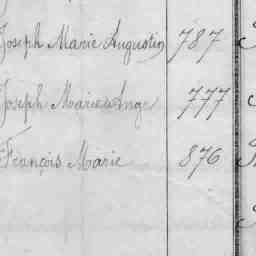 Joseph Marie Augustin 787
Joseph Marie Ange 777
François Marie 876